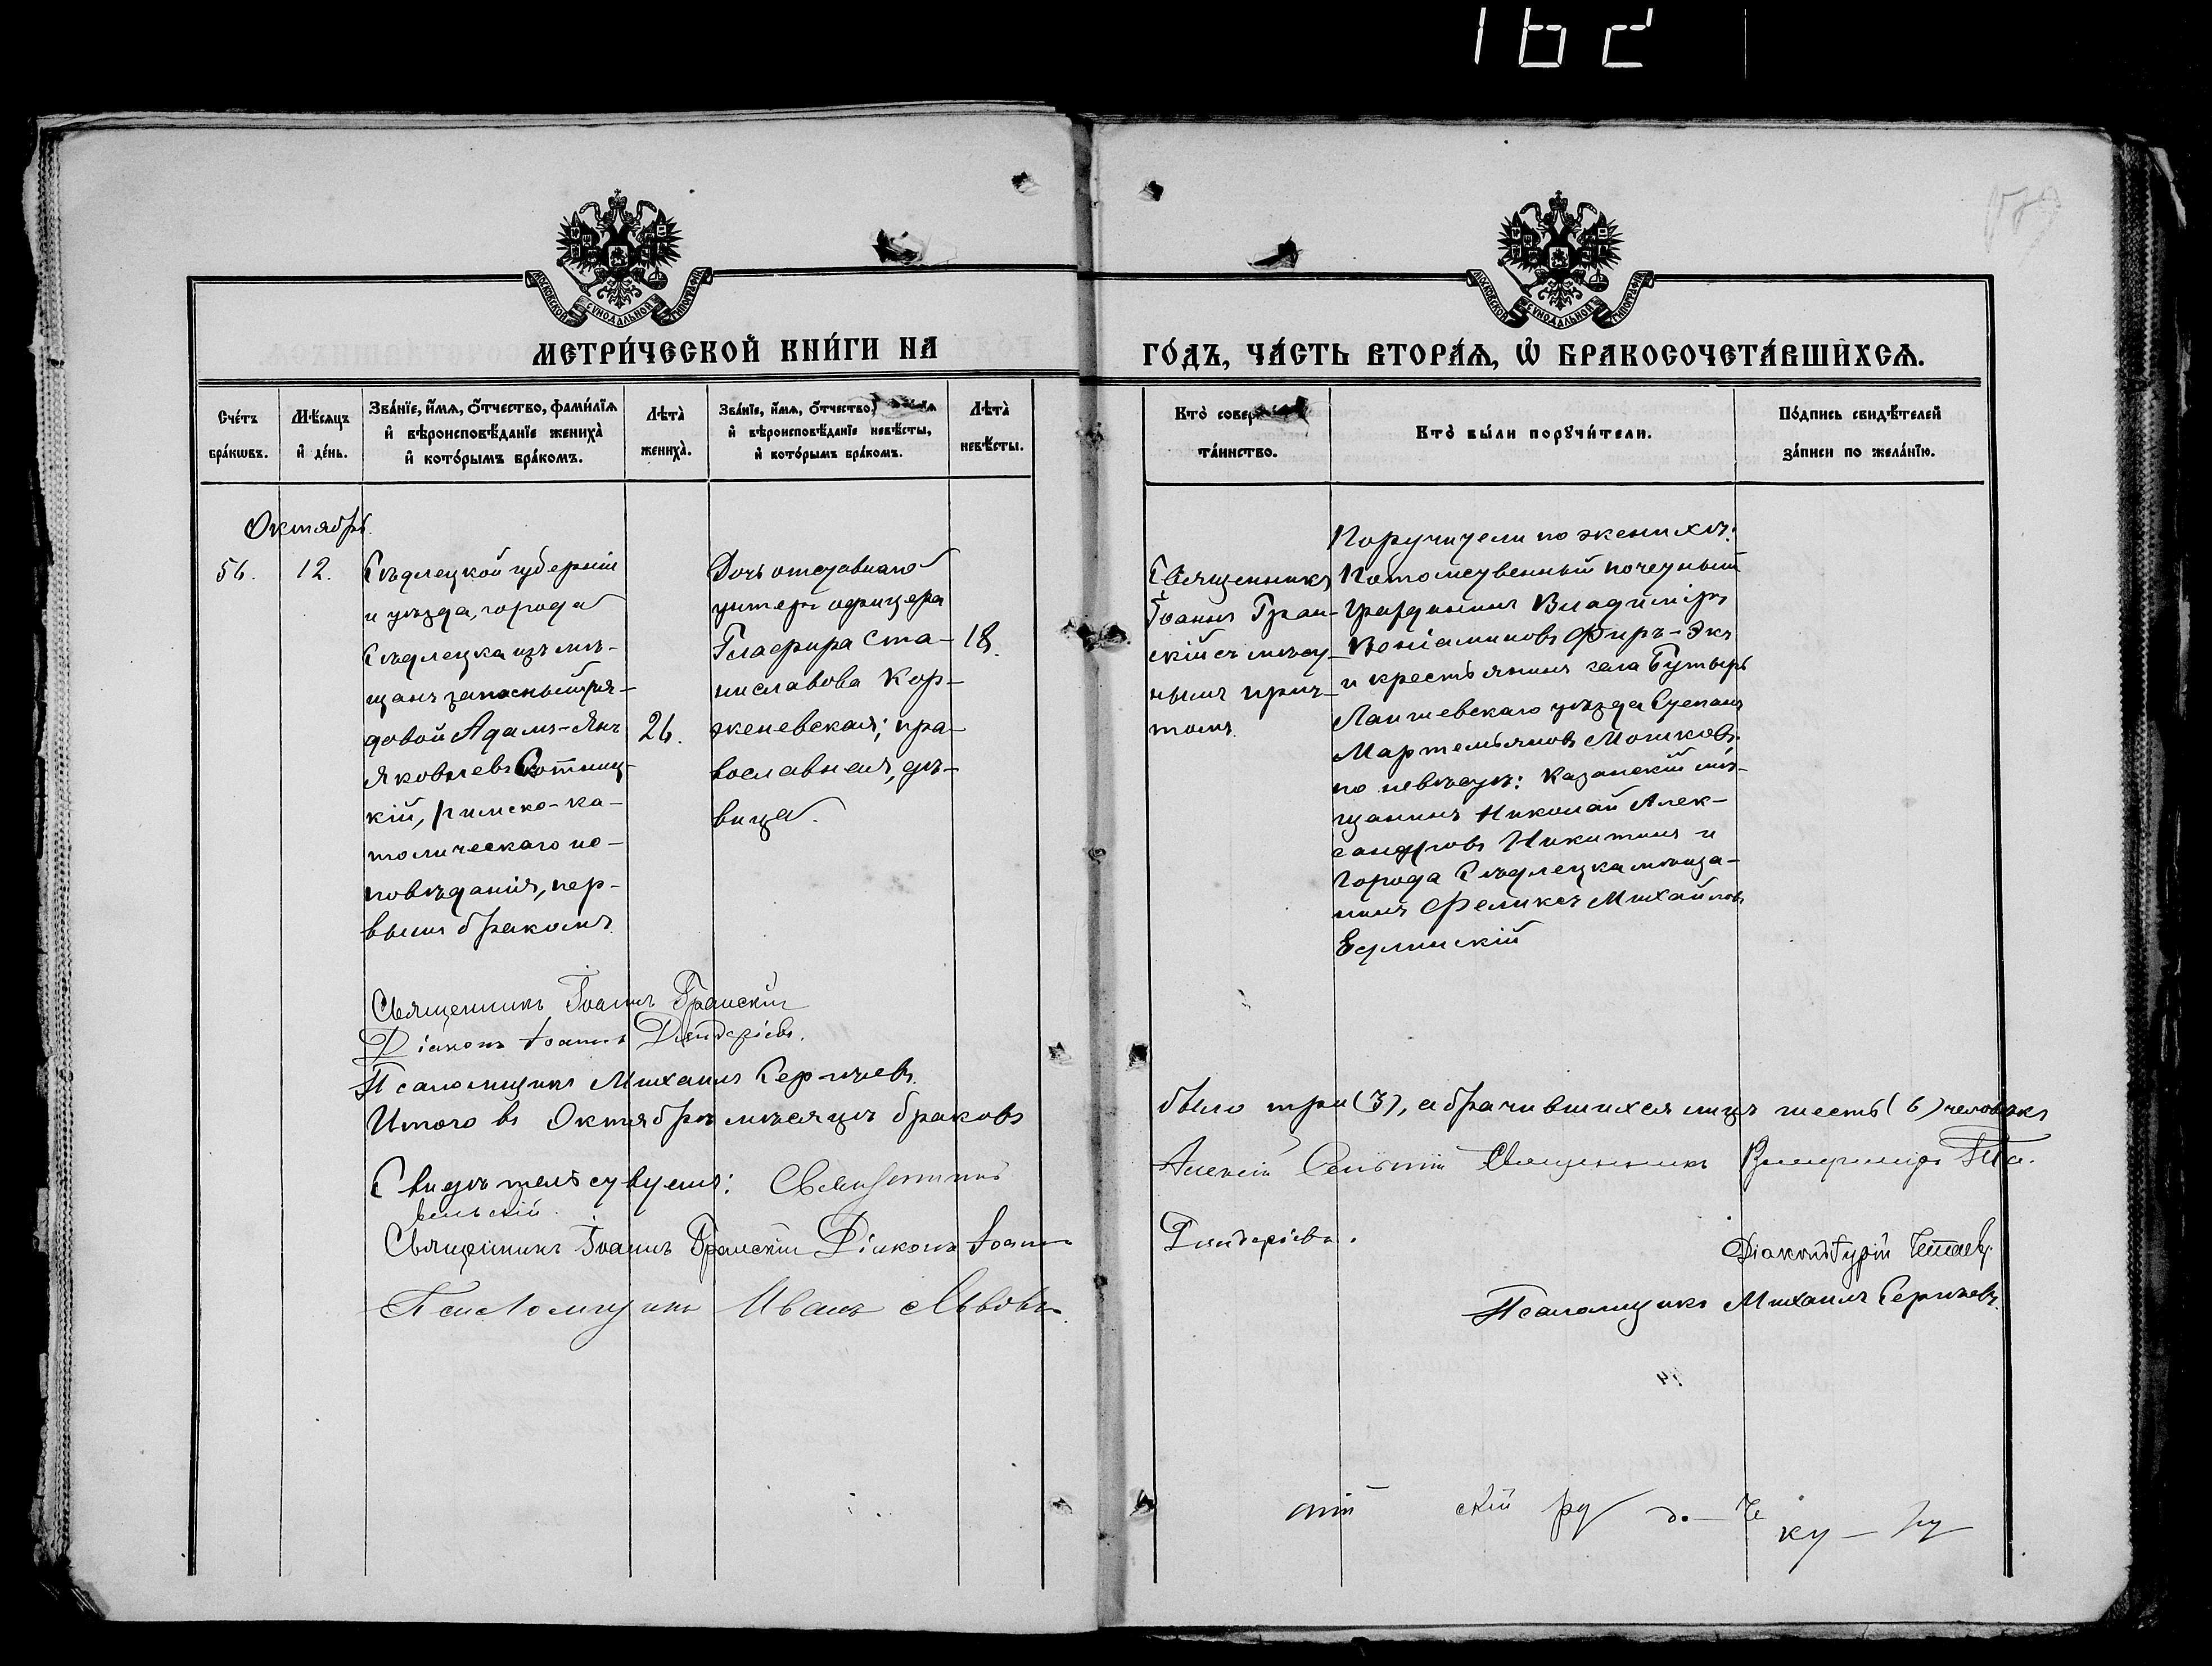 162
МОСКОВСКОЙ СѴНОДАЛЬНОЙ ТИПОГРАФІИ
МОСКОВСКОЙ СѴНОДАЛЬНОЙ ТИПОГРАФІИ
МЕТРИ́ЧЕСКОЙ КНИ́ГИ НА ГО́ДЪ, ЧА́СТЬ ВТОРА́Ѧ, Ѡ҆ БРАКОСОЧЕТА́ВШИХСѦ.
Сче́тъ бра́кѡвъ.
Мѣ́сѧцъ и҆ де́нь.
Зва́нїе, и҆́мѧ, ѻ҆́тчество, фами́лїѧ и҆ вѣроисповѣ́данїе жениха̀ и҆ кото́рымъ бра́комъ.
Лѣта̀ жениха̀.
Зва́нїе, и҆́мѧ, ѻ҆́тчество, и҆ вѣроисповѣ́данїе невѣ́сты, и҆ кото́рымъ бра́комъ.
Лѣта̀ невѣ́сты.
Кто̀ та́инство.
Кто̀ бы́ли порꙋчи́тели.
По́дпись свидѣ́телей за́писи по жела́нїю.
Октябрь.
56.
12.
Сѣдлецкой губерніи
и уѣзда, города
Сѣдлецка изъ мѣ-
щанъ запасный ря-
довой Адамъ-Янъ
Яковлевъ Сотниц-
кій, римско-ка-
толическаго ис-
повѣданія, пер-
вымъ бракомъ.
26.
Дочь отставнаго
унтеръ офицера
Глафира Ста-
ниславова Кор-
женевская; пра-
вославная, дѣ-
вица.
18.
Священникъ
Іоаннъ Гран-
скій съ мѣст-
нымъ прич-
томъ.
Поручители по женихѣ:
Потомственный почетный
гражданинъ Владиміръ
Веніаминовъ Фиръ-Экъ
и крестьянинъ села Бутырь
Лаишевскаго уѣзда Степанъ
Мартемьяновъ Мошковъ.
по невѣстѣ: Казанскій мѣ-
щанинъ Николай Алек-
сандровъ Никитинъ и
города Сѣдлецка мѣща-
нинъ Феликсъ Михайловъ
Едлинскій
Священникъ Іоаннъ Гранскій
Діаконъ Іоаннъ
Псаломщикъ Михаилъ Сергѣевъ.
Итого въ Октябрѣ мѣсяцѣ браковъ было три (3), а брачившихся лицъ шесть (6) человѣкъ
Свидѣтельствуемъ: Священникъ Алексій Священникъ Владиміръ
Священникъ Іоаннъ Гранскій Діаконъ Іоаннъ
Діаконъ Гурій
Псаломщикъ Иванъ Львовъ.
Псаломщикъ Михаилъ Сергѣевъ.
скій